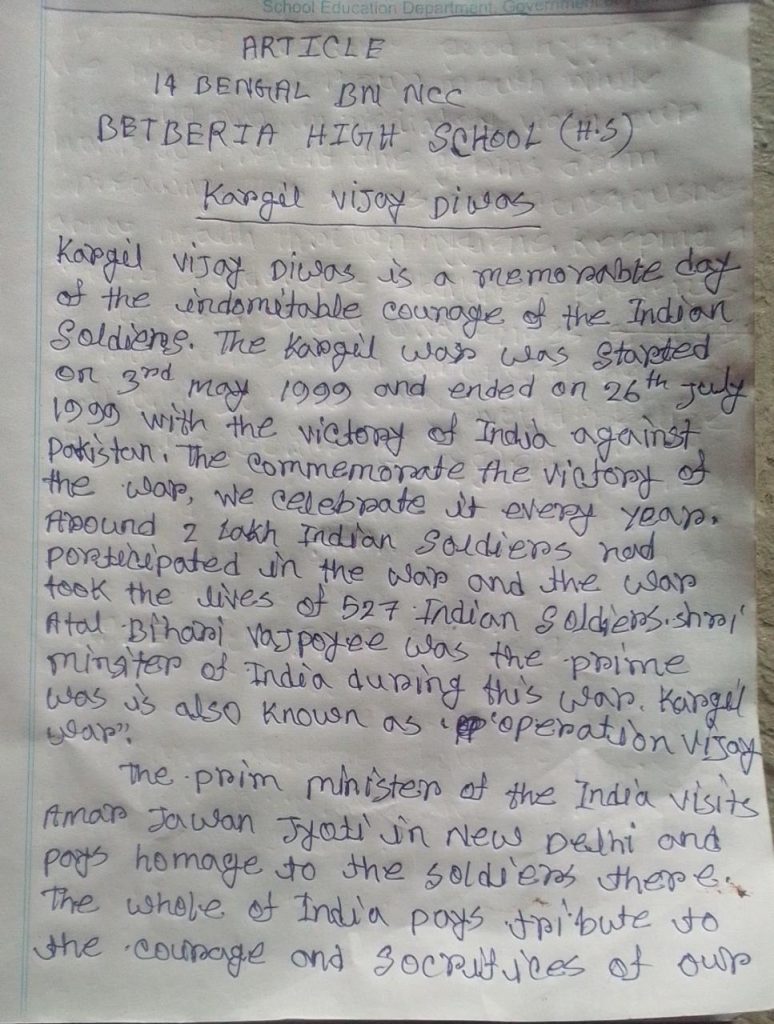 School Education Department, Government of
ARTICLE
14 BENGAL BN NCC
BETBERIA HIGH SCHOOL (H.S)
Kargil vijay Diwas
Kargil vijay Diwas is a memorable day
of the indomitable courage of the Indian
Soldiers. The Kargil war was started
on 3rd may 1999 and ended on 26th july
1999 with the victory of India against
Pakistan. The commemorate the victory of
the war, we celebrate it every year.
Around 2 lakh Indian Soldiers had
participated in the war and the war
took the lives of 527 Indian Soldiers. shri
Atal Bihari Vajpoyee was the prime
minsiter of India during this war. Kargil
was is also known as "operation Vijay
war".
The prim minister of the India visits
Amar Jawan Jyoti in New Delhi and
pays homage to the soldiers there.
The whole of India pays tribute to
the courage and Socrifices of our